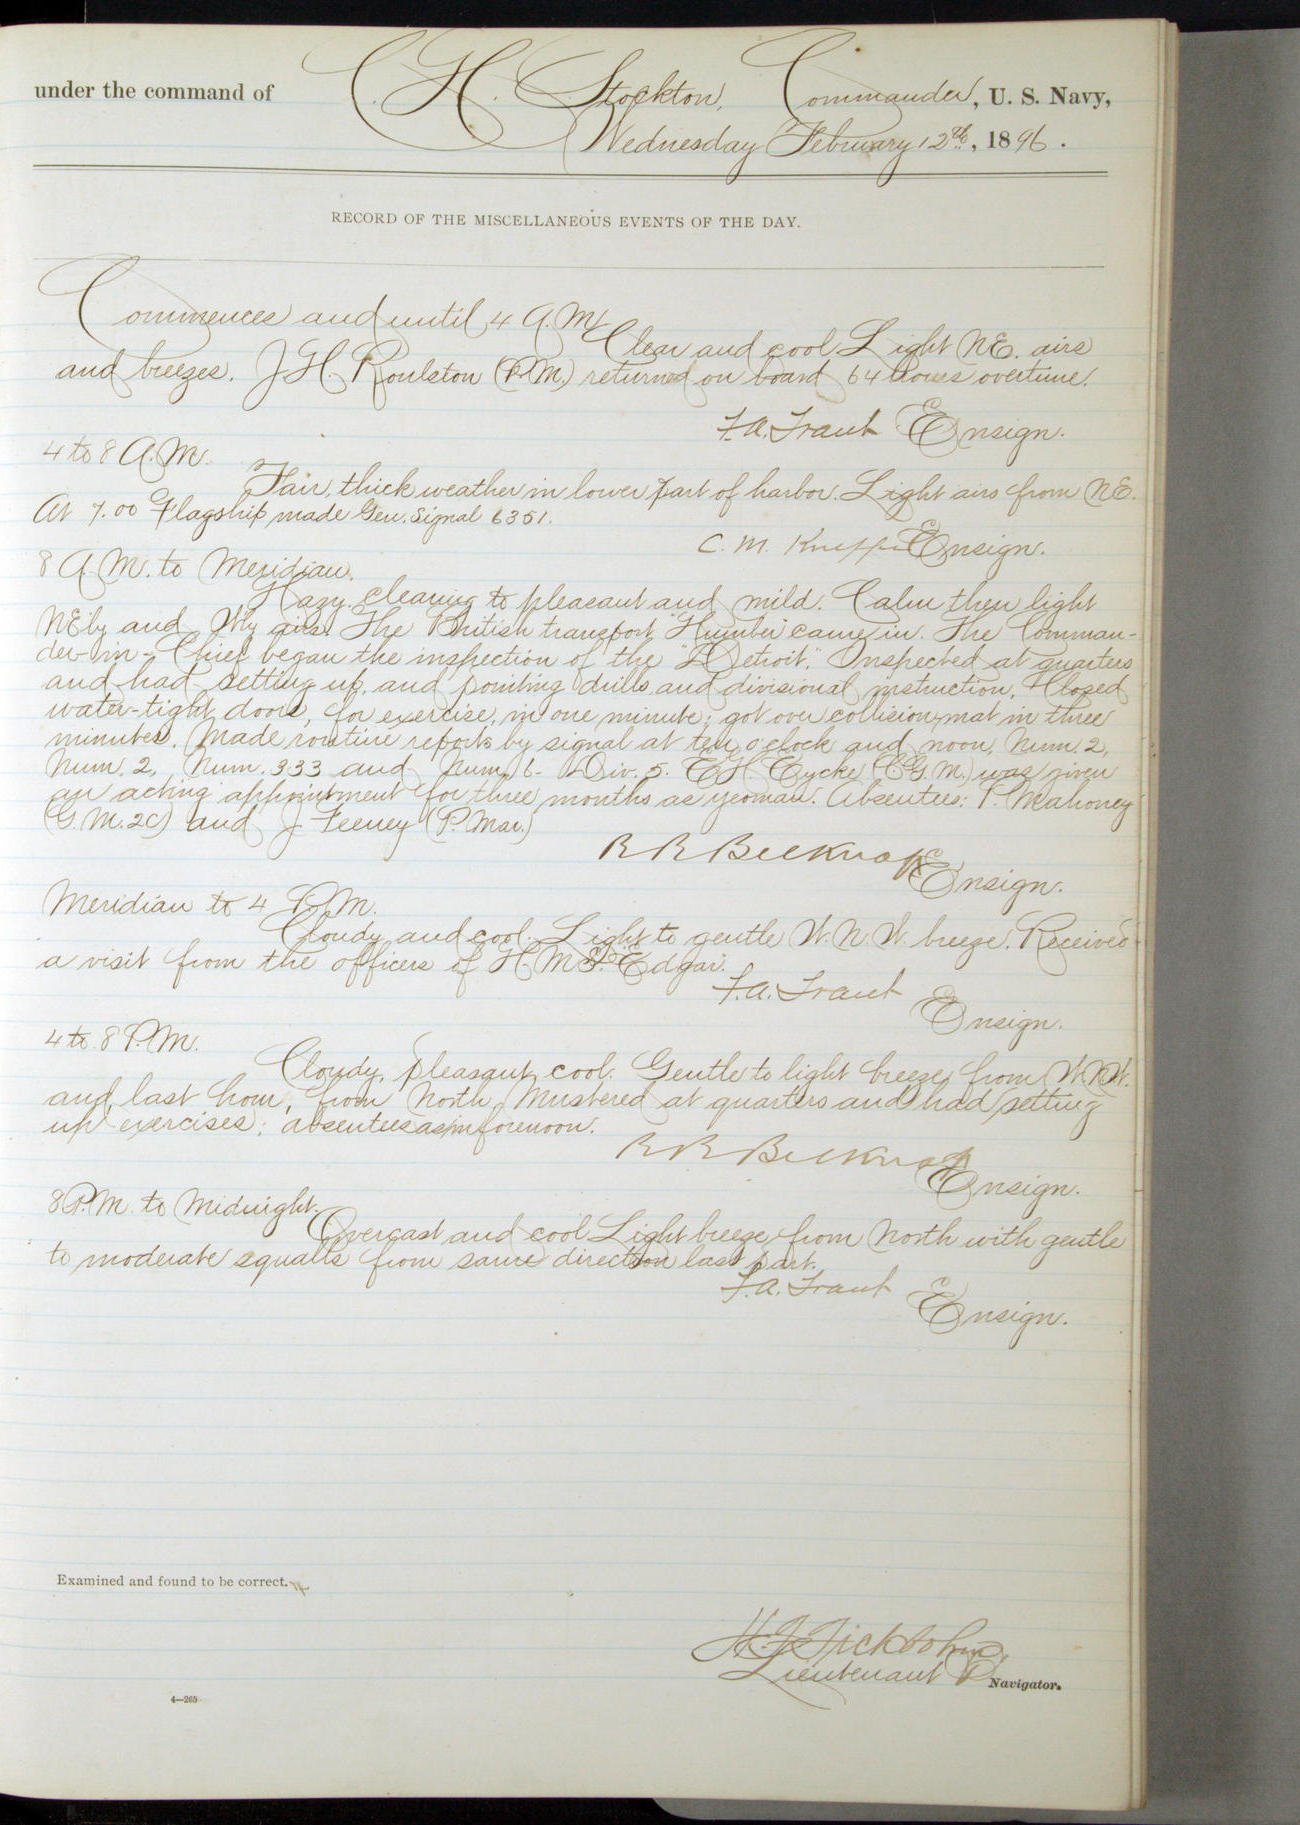 under the command of C. H. Stockton, Commander, U. S. Navy,
Wednesday February 12th, 1896.
RECORD OF THE MISCELLANEOUS EVENTS OF THE DAY.
Commences and until 4 A.M.
Clear and cool Light NE. airs
and breezes. J H. Roulston (P.M.) returned on board 64 hours overtime.
F.A. Traut Ensign.
4 to 8 A.M.
Fair, thick weather in lower part of harbor. Light airs from NE.
At 7.00 Flagship made Gen. Signal 6351.
C. M. Ensign.
8 A.M. to Meridian.
Hazy clearing to pleasant and mild. Calm then light
NE'ly and W'ly airs. The British transport "Humber" came in. The Comman-
der-in-Chief began the inspection of the "Detroit." Inspected at quarters
and had setting up, and pointing drills and divisional instruction. Closed
water-tight doors, for exercise, in one minute; got over collision mat in three
minutes. Made routine reports by signal at ten o'clock and noon, Num. 2,
Num. 2, Num. 333 and Num. 6 - Div. 5. E H Eycke (C.G.M.) was given
an acting appointment for three months as yeoman. Absentees: P. Mahoney
(G.M.2C) and J Feeney (P. Mar.)
R R Belknap Ensign.
Meridian to 4 P.M.
Cloudy and cool. Light to gentle W.N.W. breeze. Received
a visit from the officers of H.M.S. Edgar.
F.A. Traut
Ensign.
4 to 8 P.M.
Cloudy, pleasant, cool. Gentle to light breeze from W.N.W.
and, last hour, from North. Mustered at quarters and had setting
up exercises; absentees as in forenoon.
R R Belknap
Ensign.
8 P.M. to Midnight.
Overcast and cool Light breeze from North with gentle
to moderate squalls from same direction last part.
F.A. Traut
Ensign.
Examined and found to be correct.
Lieutenant Navigator.
4—265